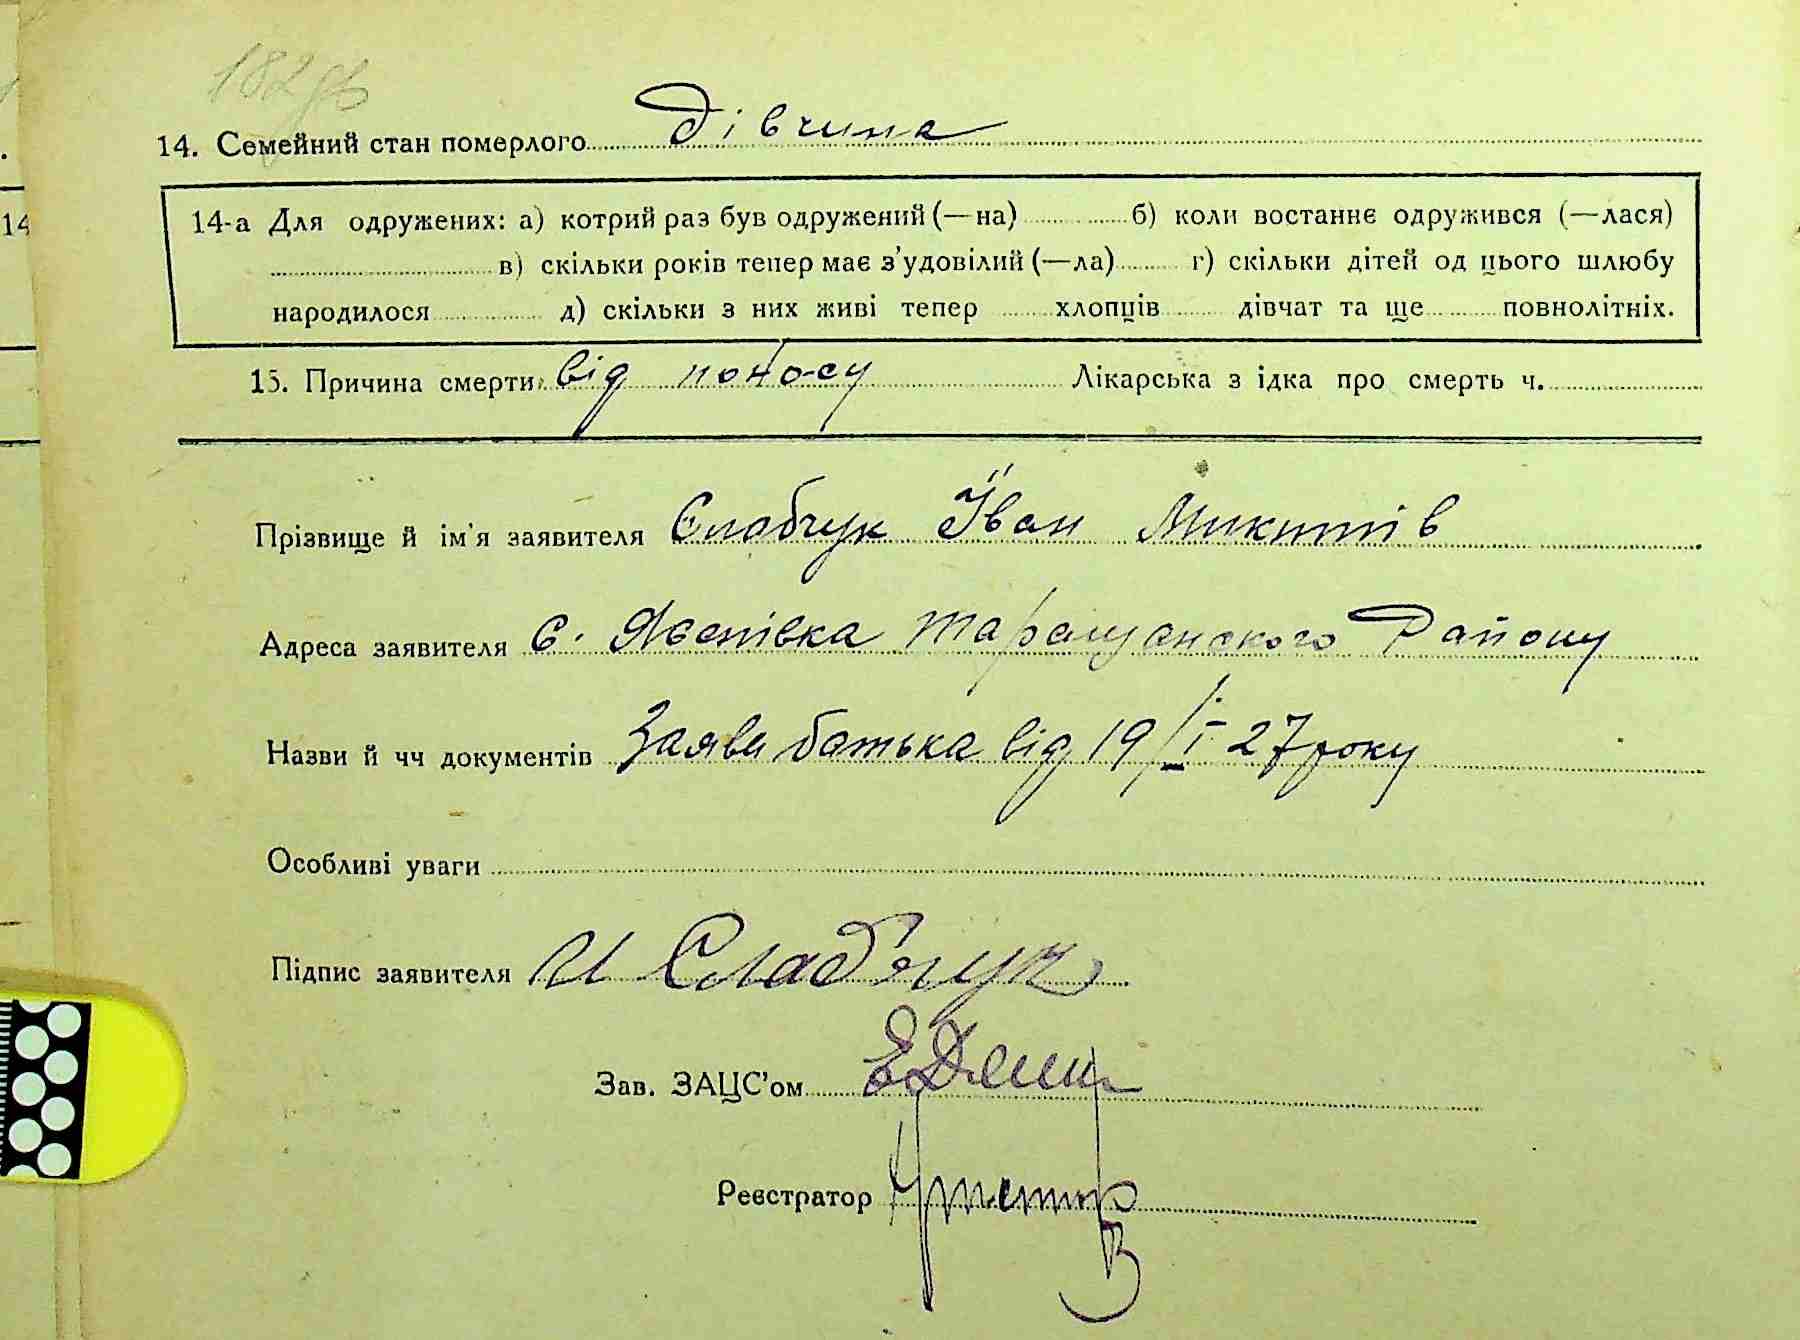 14. Семейний стан померлого дівчина
14
14-а Для одружених: а) котрий раз був одружений (—на) б) коли востаннє одружився (—лася)
в) скільки років тепер має з'удовілий (—ла) г) скільки дітей од цього шлюбу
народилося д) скільки з них живі тепер хлопців дівчат та ще повнолітніх.
15. Причина смерти від поносу Лікарська з ідка про смерть ч.
Прізвище й ім'я заявителя Слабчук Іван Микитів
Адреса заявителя с. Таращанського Району
Назви й чч документів Заява батька від 19/I 27 року
Особливі уваги
Підпис заявителя И Слабчук
Зав. ЗАЦС'ом
Реєстратор